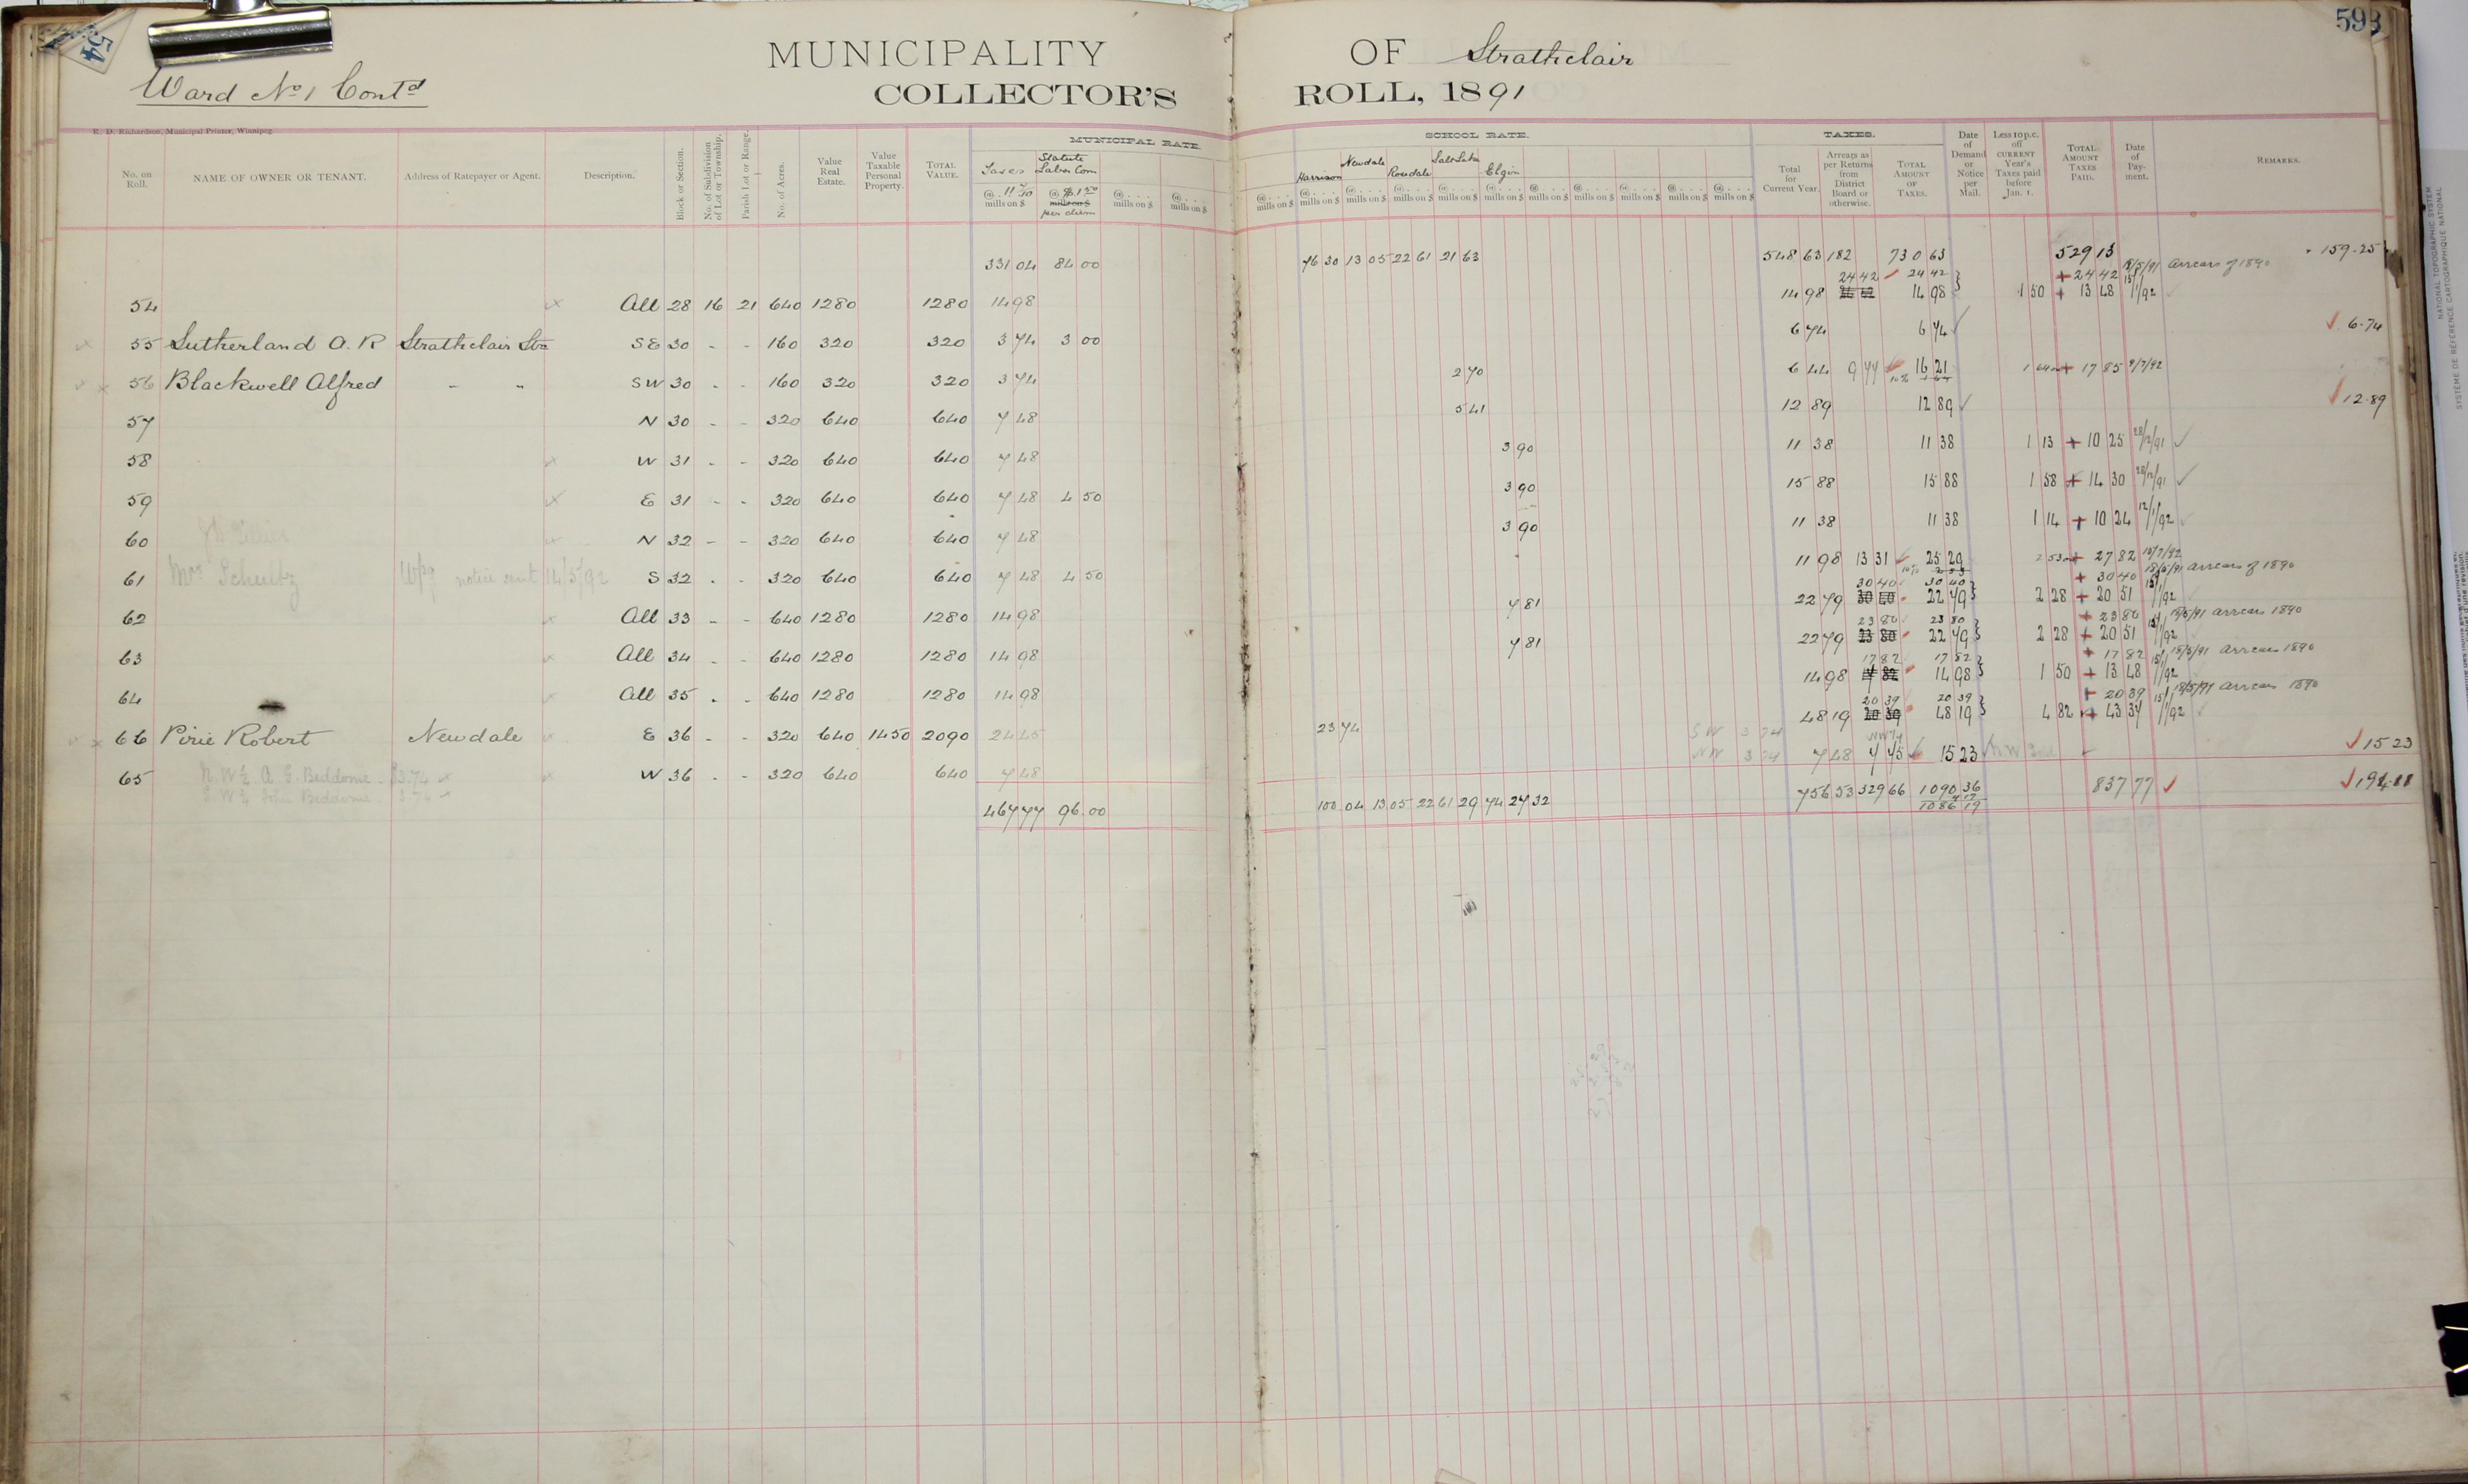 54
593
MUNICIPALITY OF Strathclair
Ward No 1 Contd
COLLECTOR'S ROLL, 1891
R. D. Richardson, Municipal Printer, Winnipeg.
MUNICIPAL RATE. SCHOOL RATE. TAXES.
No. on Roll. NAME OF OWNER OR TENANT. Address of Ratepayer or Agent. Description. Block or Section. No. of Subdivision of Lot or Township. Parish Lot or Range. No. of Acres. Value Real Estate. Value Taxable Personal Property. TOTAL VALUE. Taxes @ 11 7/10 mills on $ Statute Labor Com @ $1.50 mills on $ per diem @ . . . mills on $ @ . . . mills on $
@ . . . mills on $ Harrison Newdale Rosedale Salt Lake Elgin Total for Current Year. Arrears as per Returns from District Board or otherwise. TOTAL AMOUNT OF TAXES. Date of Demand or Notice per Mail. Less 10 p.c. off CURRENT Year's Taxes paid before Jan. 1. TOTAL AMOUNT TAXES PAID. Date of Payment. REMARKS.
331 04 84 00 76 30 13 05 22 61 21 63 548 63 182 730 63 529 13 159.25
24 42 24 42 + 24 42 18/5/91 arrears of 1890
54 All 28 16 21 640 1280 1280 14 98 14 98 14 98 1 50 + 13 48 15/1/92
55 Sutherland A. R Strathclair Stn SE 30 - - 160 320 320 3 74 3 00 6 74 6 74 6.74
56 Blackwell Alfred - " SW 30 - - 160 320 320 3 74 2 70 6 44 9 77 16 21 10% 1 64 + 17 85 9/7/92
57 N 30 - - 320 640 640 7 48 5 41 12 89 12 89 12.89
58 W 31 - - 320 640 640 7 48 3 90 11 38 11 38 1 13 + 10 25 28/12/91
59 E 31 - - 320 640 640 7 48 4 50 3 90 15 88 15 88 1 58 + 14 30 28/12/91
60 N 32 - - 320 640 640 7 48 3 90 11 38 11 38 1 14 + 10 24 12/1/92
61 Mrs Schultz Wpg notice sent 14/5/92 S 32 - - 320 640 640 7 48 4 50 11 98 13 31 25 29 10% 2 53 + 27 82 15/7/92
30 40 30 40 + 30 40 18/5/91 arrears of 1890
62 All 33 - - 640 1280 1280 14 98 7 81 22 79 30 40 22 79 2 28 + 20 51 15/1/92
23 80 23 80 + 23 80 18/5/91 arrears 1890
63 All 34 - - 640 1280 1280 14 98 7 81 22 79 23 80 22 79 2 28 + 20 51 15/1/92
17 82 17 82 + 17 82 18/5/91 arrears 1890
64 All 35 - - 640 1280 1280 14 98 14 98 17 82 14 98 1 50 + 13 48 15/1/92
20 39 20 39 + 20 39 18/5/91 arrears 1890
66 Pirie Robert Newdale E 36 - - 320 640 1450 2090 24 45 23 74 48 19 20 39 48 19 4 82 + 43 37 15/1/92
SW 3 74
NW 3 74
65 N.W¼ A. G. Beddome $3.74 W 36 - - 320 640 640 7 48 7 48 7 75 15 23 15 23
S.W¼ John Beddome 3.74
467 77 96.00 100 04 13 05 22 61 29 74 27 32 756 53 329 66 1090 36 837 77 194.11
1086 19